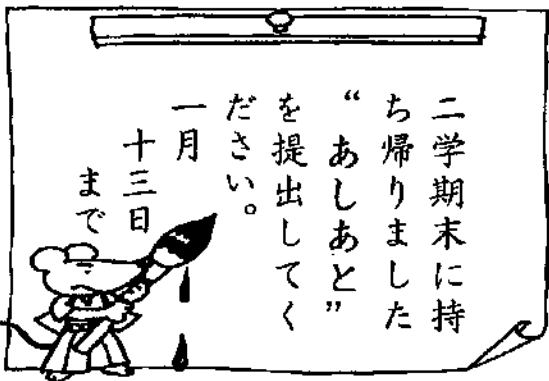 二学期末に持
ち帰りました
“あしあと”
を提出してく
ださい。
一月
十三日
まで